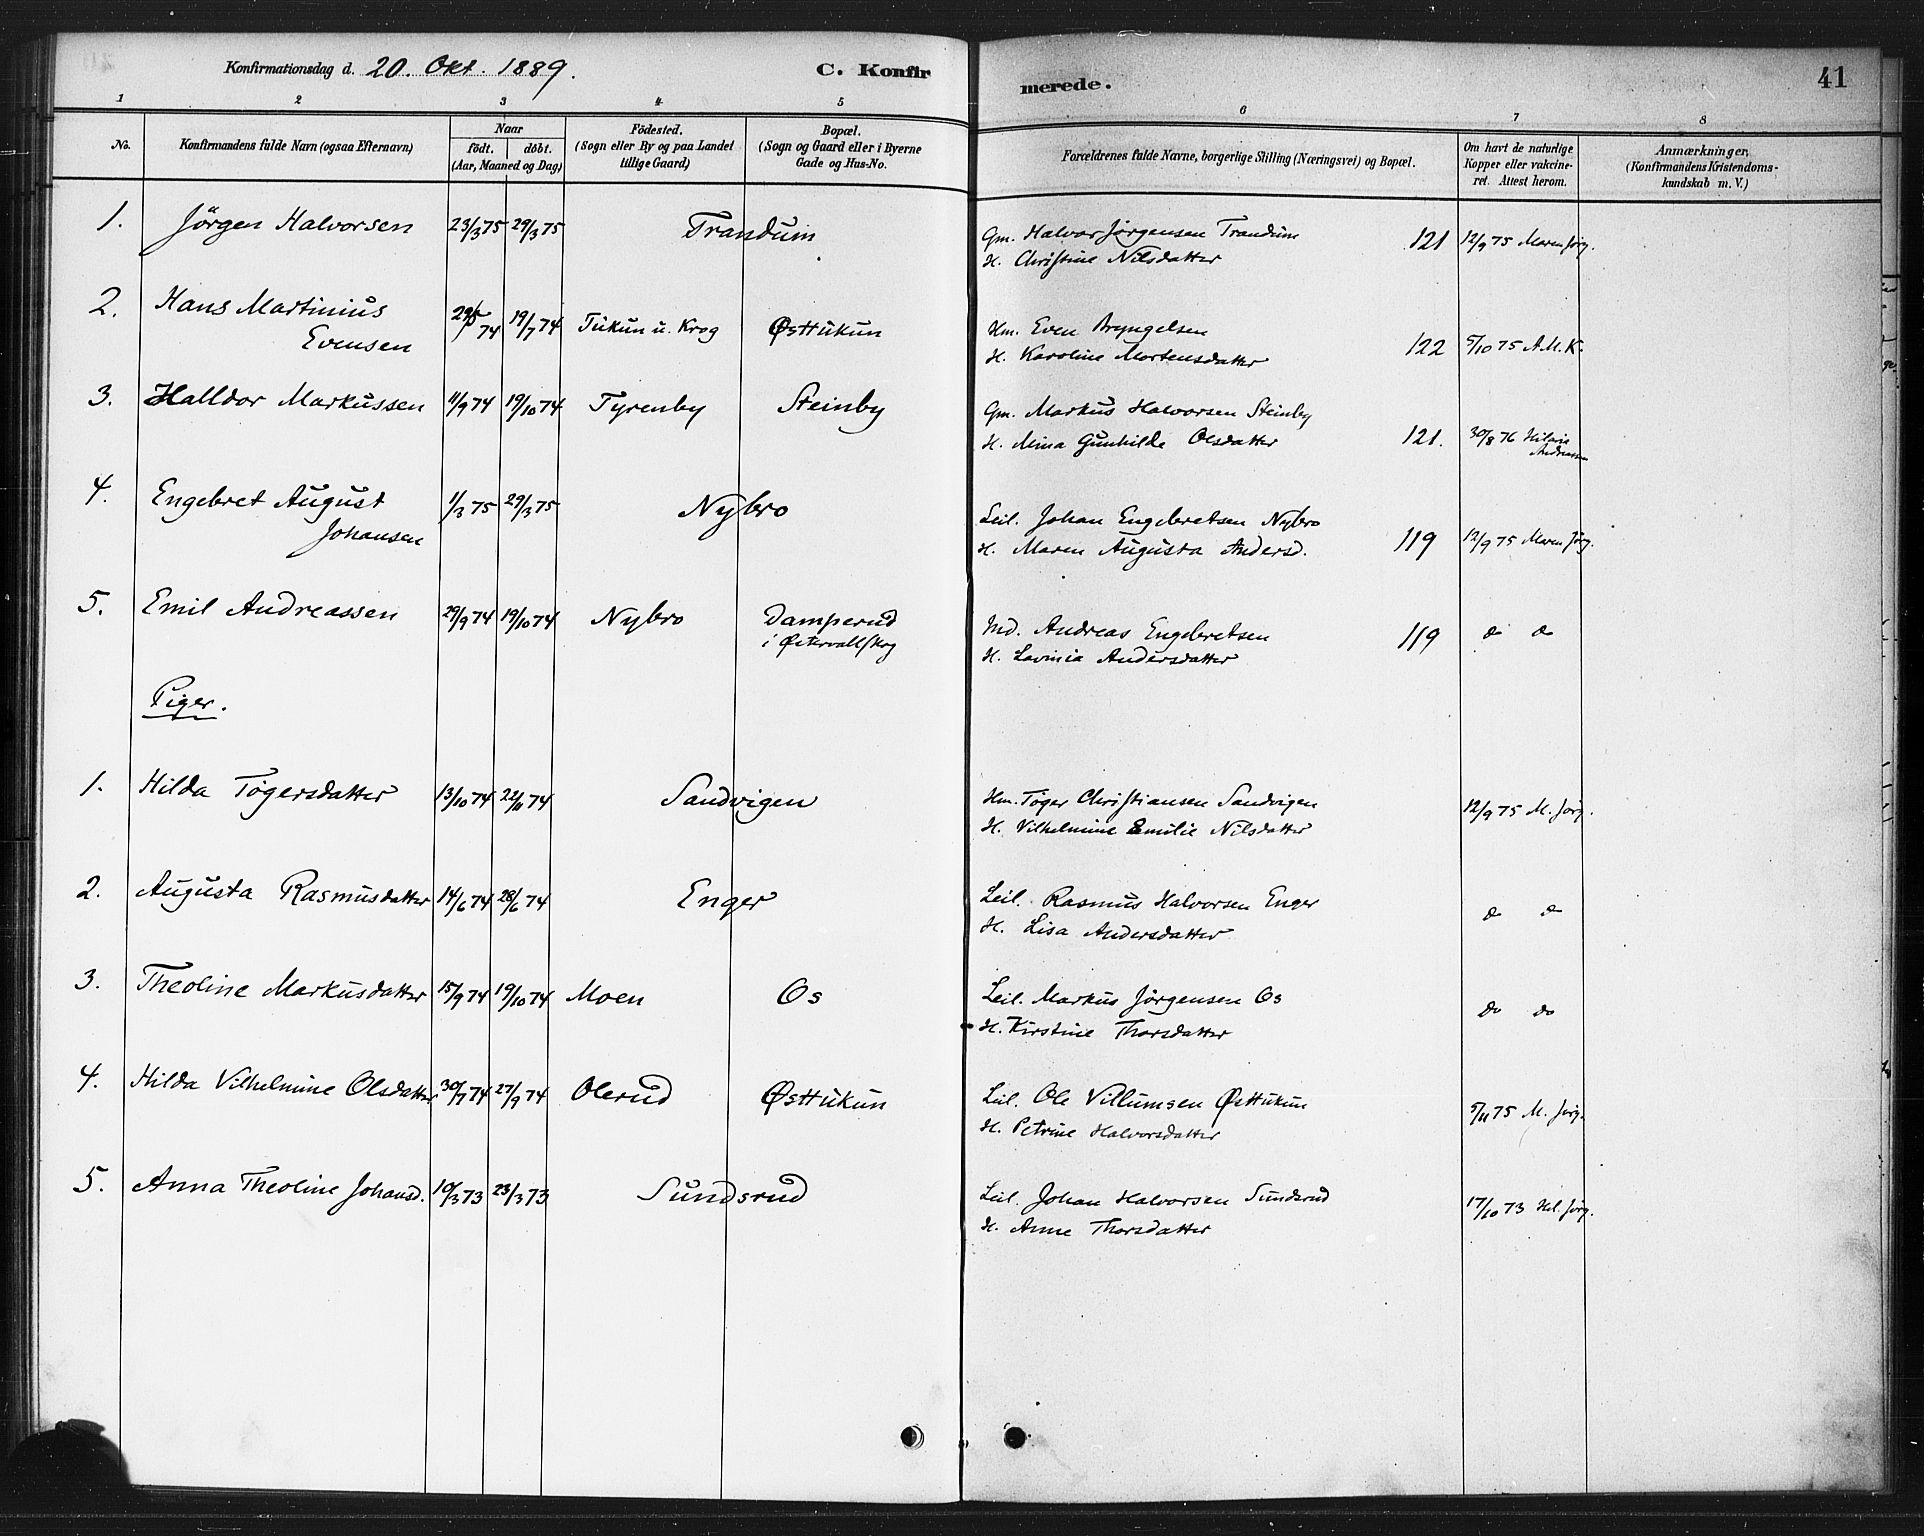 Konfirmationsdag d. 20. Okt. 1889.
C. Konfirmerede.
41
1 2 3 4 5 6 7 8
No.
Konfirmandens fulde Navn (ogsaa Efternavn)
Naar
födt. döbt.
(Aar, Maaned og Dag)
Födested.
(Sogn eller By og paa Landet
tillige Gaard)
Bopæl.
(Sogn og Gaard eller i Byerne
Gade og Hus-No.
Forældrenes fulde Navne, borgerlige Stilling (Næringsvei) og Bopæl.
Om havt de naturlige
Kopper eller vakcine-
ret. Attest herom.
Anmærkninger,
(Konfirmandens Kristendoms-
kundskab m. V.)
1. Jörgen Halvorsen 23/3 75 29/3 75 Trandum
Gm. Halvor Jørgensen Trandum 121 12/9 75 Maren Jørg.
H. Christine Nilsdatter
2. Hans Martinius
Evensen 74 19/7 74 Tukun u. Krog Østtukun
Hm. Even Bryngelsen
H. Karoline Mortensdatter 122 5/10 75 A.M.K.
3. Halldor Markussen 11/9 74 19/10 74 Tyrenby Steinby
Gm. Markus Halvorsen Steinby
H. Mina Gunhilde Olsdatter 121. 30/8 76 Hilarie
Andreassen
4. Engebret August
Johansen 1/3 75 29/3 75 Nybro
Leil. Johan Engebretsen Nybro
H. Maren Augusta Andersd. 119 12/9 75 Maren Jørg.
5. Emil Andreassen 29/9 74 19/10 74 Nybro Damperud
i Østervallskog
Ind. Andreas Engebretsen 119 do do
H. Lavinia Andersdatter
Piger.
1. Hilda Tøgersdatter 13/10 74 22/11 74 Sandvigen
Hm. Tøger Christiansen Sandvigen 12/9 75 M. Jørg.
H. Vilhelmine Emilie Nilsdatter
2. Augusta Rasmusdatter 14/6 74 28/6 74 Enger
Leil. Rasmus Halvorsen Enger do do
H. Lisa Andersdatter
3. Theoline Markusdatter 15/9 74 19/10 74 Moen Os
Leil. Markus Jørgensen Os do do
H. Kirstine Thorsdatter
4. Hilda Vilhelmine Olsdatter 30/7 74 27/9 74 Olerud Østtukun
Leil. Ole Villumsen Østtukun 5/11 75 M. Jørg.
H. Petrine Halvorsdatter
5. Anna Theoline Johansd. 10/3 73 23/3 73 Sundsrud
Leil. Johan Halvorsen Sundsrud 17/10 73 Hel. Jørg.
H. Anne Thorsdatter